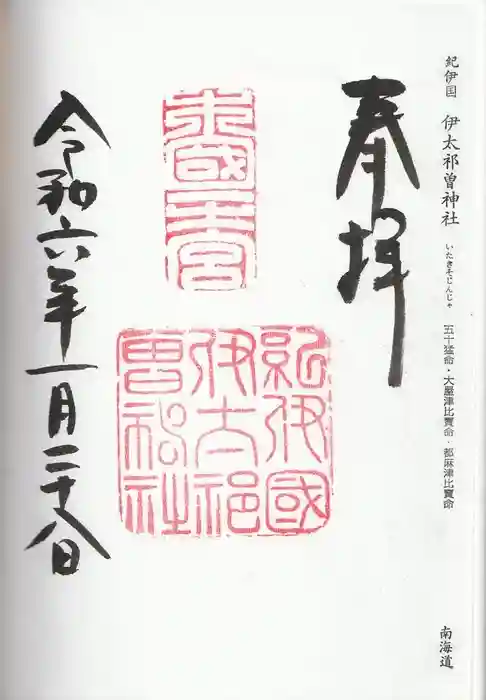 紀伊国 伊太祁曽神社 いたきそじんじゃ 五十猛命・大屋津比賣命・都麻津比賣命 南海道
奉拝
木國一宮
紀伊國
伊太祁
曽神社
令和六年一月二十八日